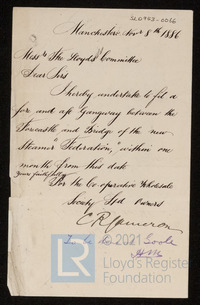 SL0943-0066
Manchester Novr 8th 1886
Messrs The Lloyds Committee
Dear Sirs
I hereby undertake to fit a
fore and aft Gangway between the
Forecastle and Bridge of the new
Steamer "Federation," within one
month from this date
Yours faithfully
For the Co operative Wholesale
Society Ltd Owners
E R Cameron
Goole
© 2021
Lloyd's Register
Foundation